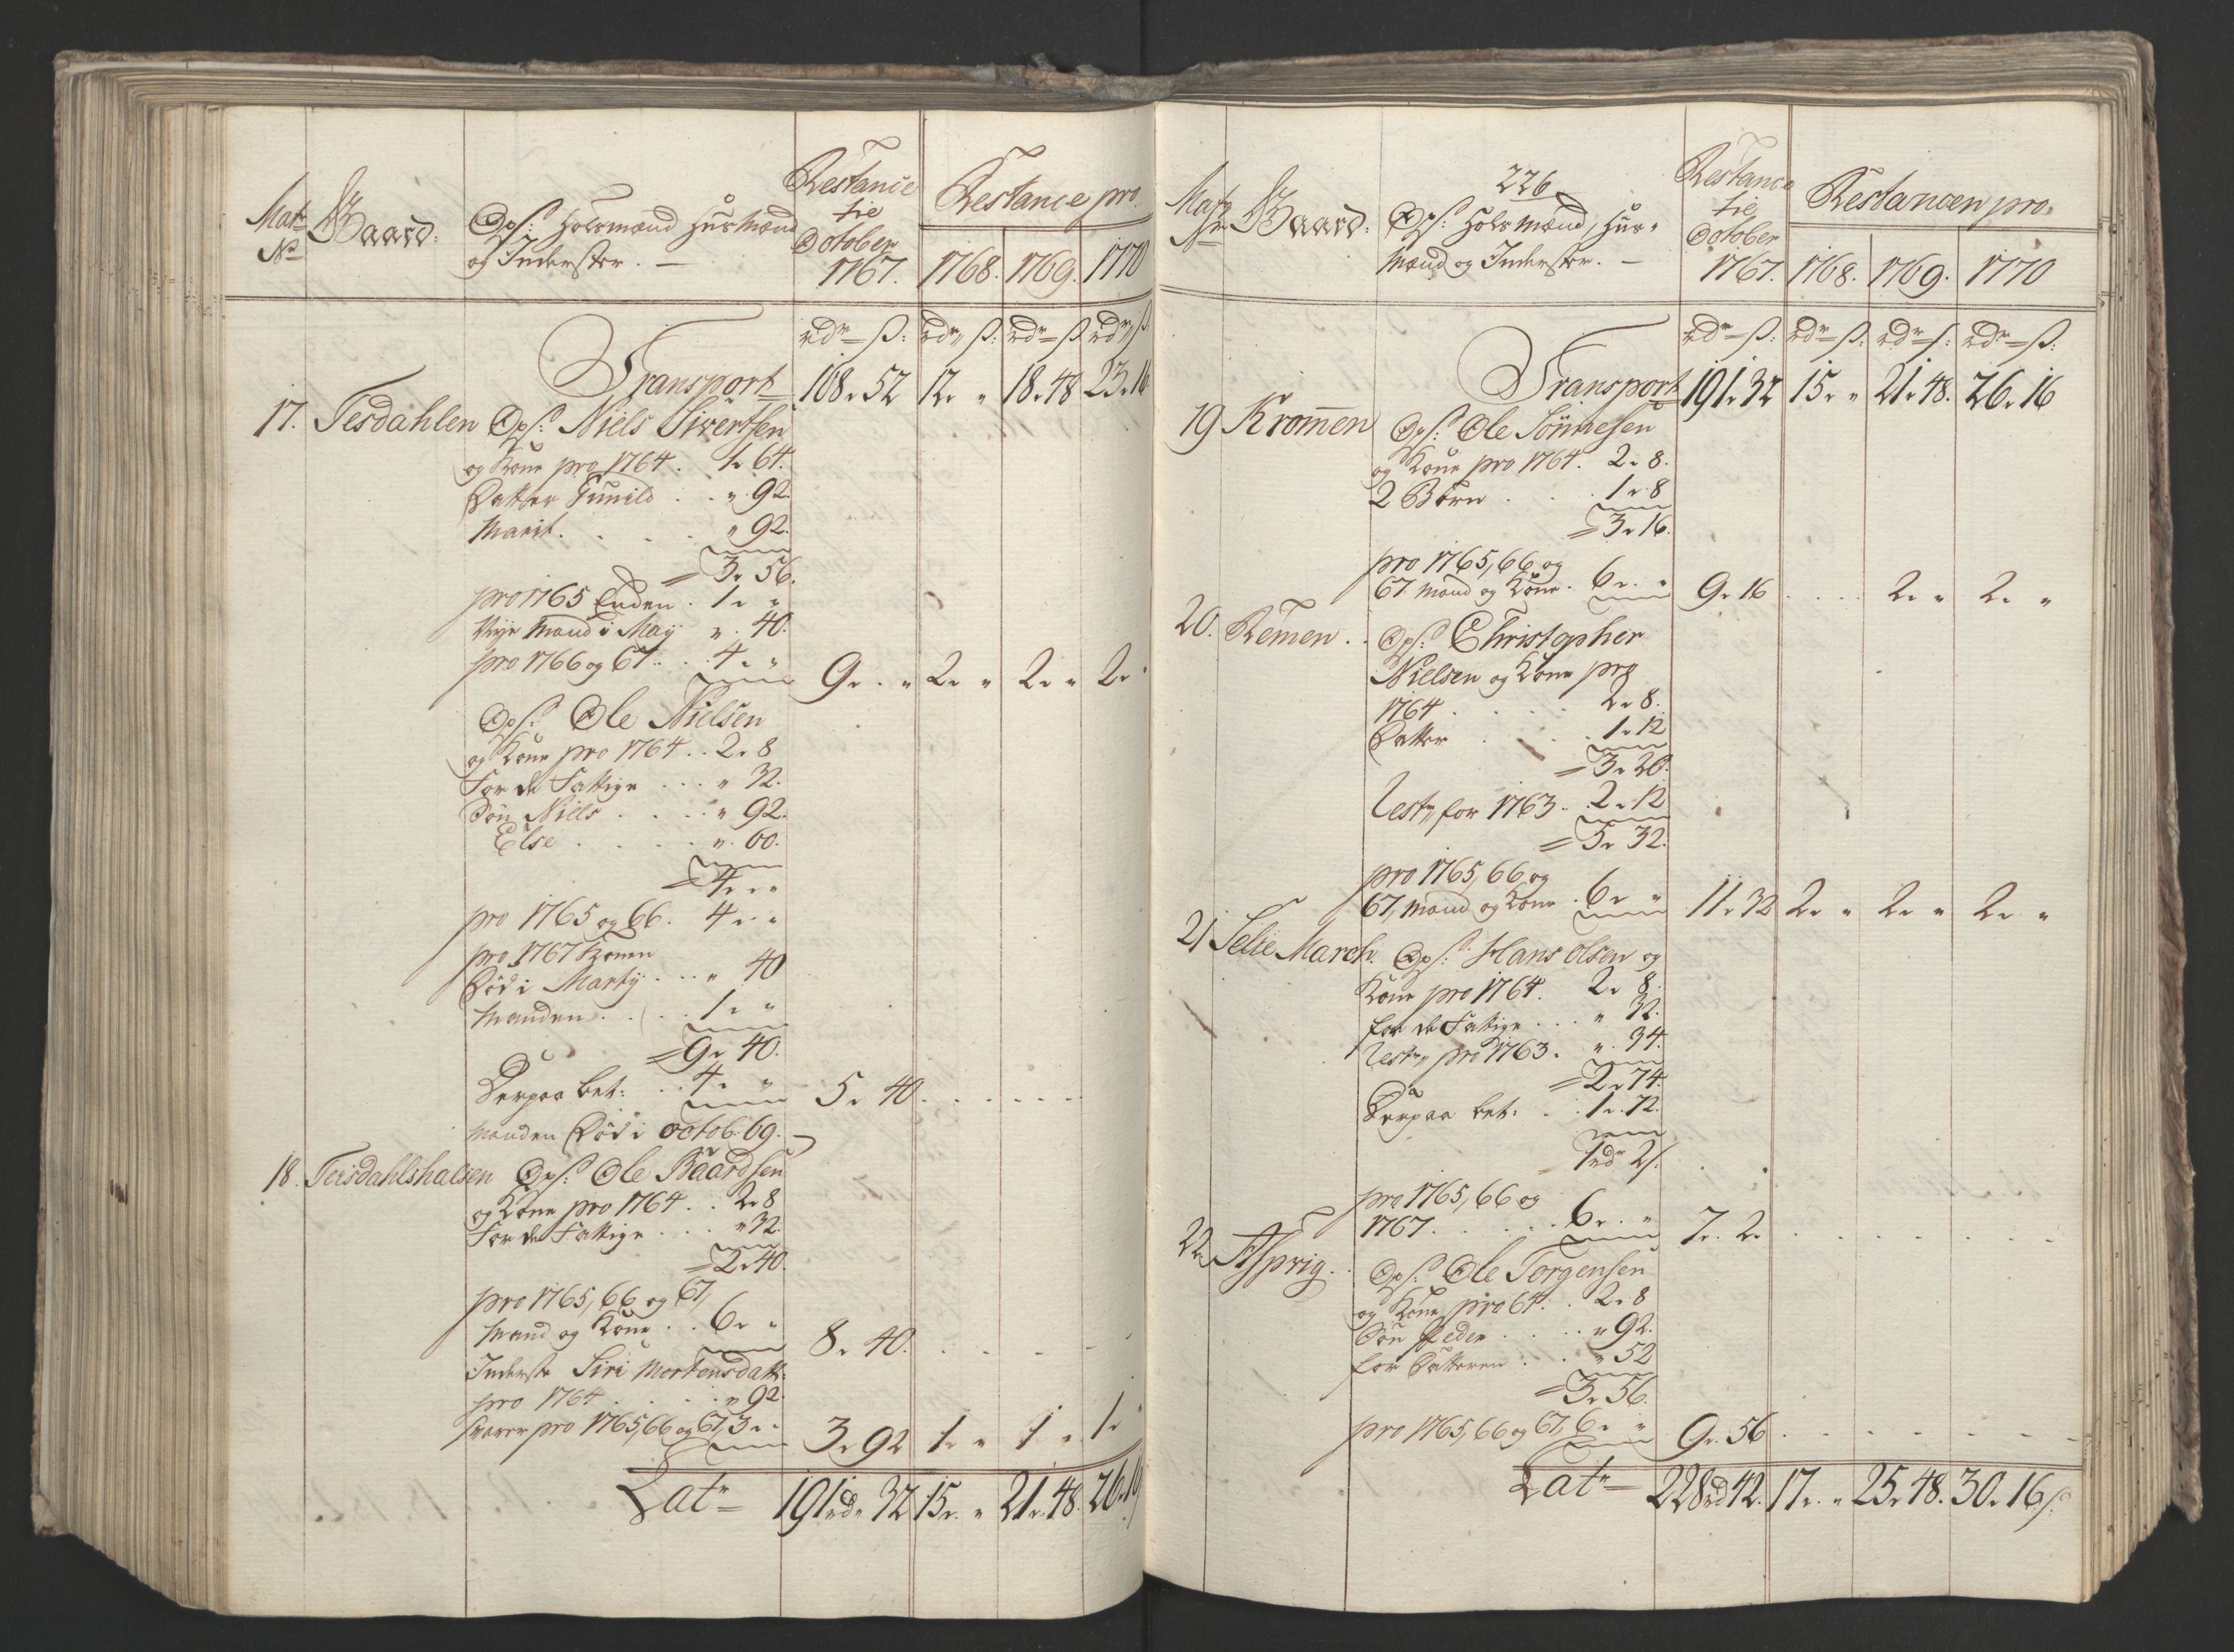 Mat: No
Gaard:
Ops: Holsmænd Huusmænd
og Inderster. —
Restance
til
October
1767.
Restance pro
1768. 1769. 1770
rdr = ß: rdr ß: rdr = ß rdr ß
Transport 168 " 52 12 " " 18 " 48 23 " 16
17. Tesdahlen Ops: Niels Sivertsen
og Kone pro 1764. 1 " 64.
Datter Gunild . . " 92.
Marit . . . . " 92.
= 3 " 56.
pro 1765 Enken . 1 " "
Nye Mand i Maij " 40.
pro 1766 og 67 . . 4 " " 9 " " 2 " " 2 " " 2 "
Ops: Ole Nielsen
og Kone pro 1764 . . 2 " 8
For de Fattige . . . " 32.
Søn Niels . . . . " 92.
Else . . . . . " 60.
= 4 " "
pro 1765 og 66. 4 " "
pro 1767 Konen
Død i Martij . . . " 40
Manden . . . . 1 " "
= 9 " 40.
Derpaa bet: . . 4 " " 5 " 40 . . . . . .
Manden Død i Octob: 69. —
18. Teisdahlshalsen Ops: Ole Baardsen
og Kone pro 1764 . . 2 " 8
For de Fattige . . . " 32.
= 2 " 40.
pro 1765, 66 og 67,
Mand og Kone . . 6 " " 8 " 40. . . . .
Inderste Siri Mortensdatt:
pro 1764 . . . . " 92.
svarer pro 1765, 66 og 67, 3 " " 3 " 92 1 " " 1 " 1 "
Latr = 191 rdr 32 15 " " 21 " 48. 26 " 16
226
Gaard:
Ops: Holsmænd, Huus-
mænd og Inderster. —
Restance
til
October
1767.
Restancen pro.
1768. 1769. 1770
rdr = ß: rdr = ß: rdr = ß: rdr = ß:
Transport 191 " 32 15 " " 21 " 48. 26 " 16
19 Kromen Ops: Ole Sönnesen
og Kone pro 1764. 2 " 8.
2 Børn . . . . 1 " 8
= 3 " 16.
pro 1765, 66 og
67 Mand og Kone. 6 " " 9 " 16 . . . . 2 " " 2 " "
20. Remen . . Ops: Christopher
Nielsen og Kone pro
1764 . . . . 2 " 8.
Datter . . . . 1 " 12
= 3 " 20.
Rest for 1763 . 2 " 12
= 5 " 32.
pro 1765, 66 og
67, Mand og Kone . 6 " " 11 " 32 2 " " 2 " " 2 " "
21 Selie March. Ops: Hans Olsen og
Kone pro 1764. 2 " 8.
for de Fattige . . . " 32.
Rest pro 1763 . " 34.
= 2 " 74.
Derpaa bet: . . 1 " 72.
1 rdr 2 ß.
pro 1765, 66 og
1767. . . . . 6 " " 7 " 2 . . . . . .
22 Asprig. . Ops: Ole Torgensen
og Kone pro 64. . 2 " 8
Søn Peder . . . . " 92.
for Datteren . . . " 52
= 3 " 56.
pro 1765, 66 og 67, 6 " " 9 " 56 . . . . . .
Latr = 228 rd 42. 17 " " 25 " 48. 30 " 16 ß.